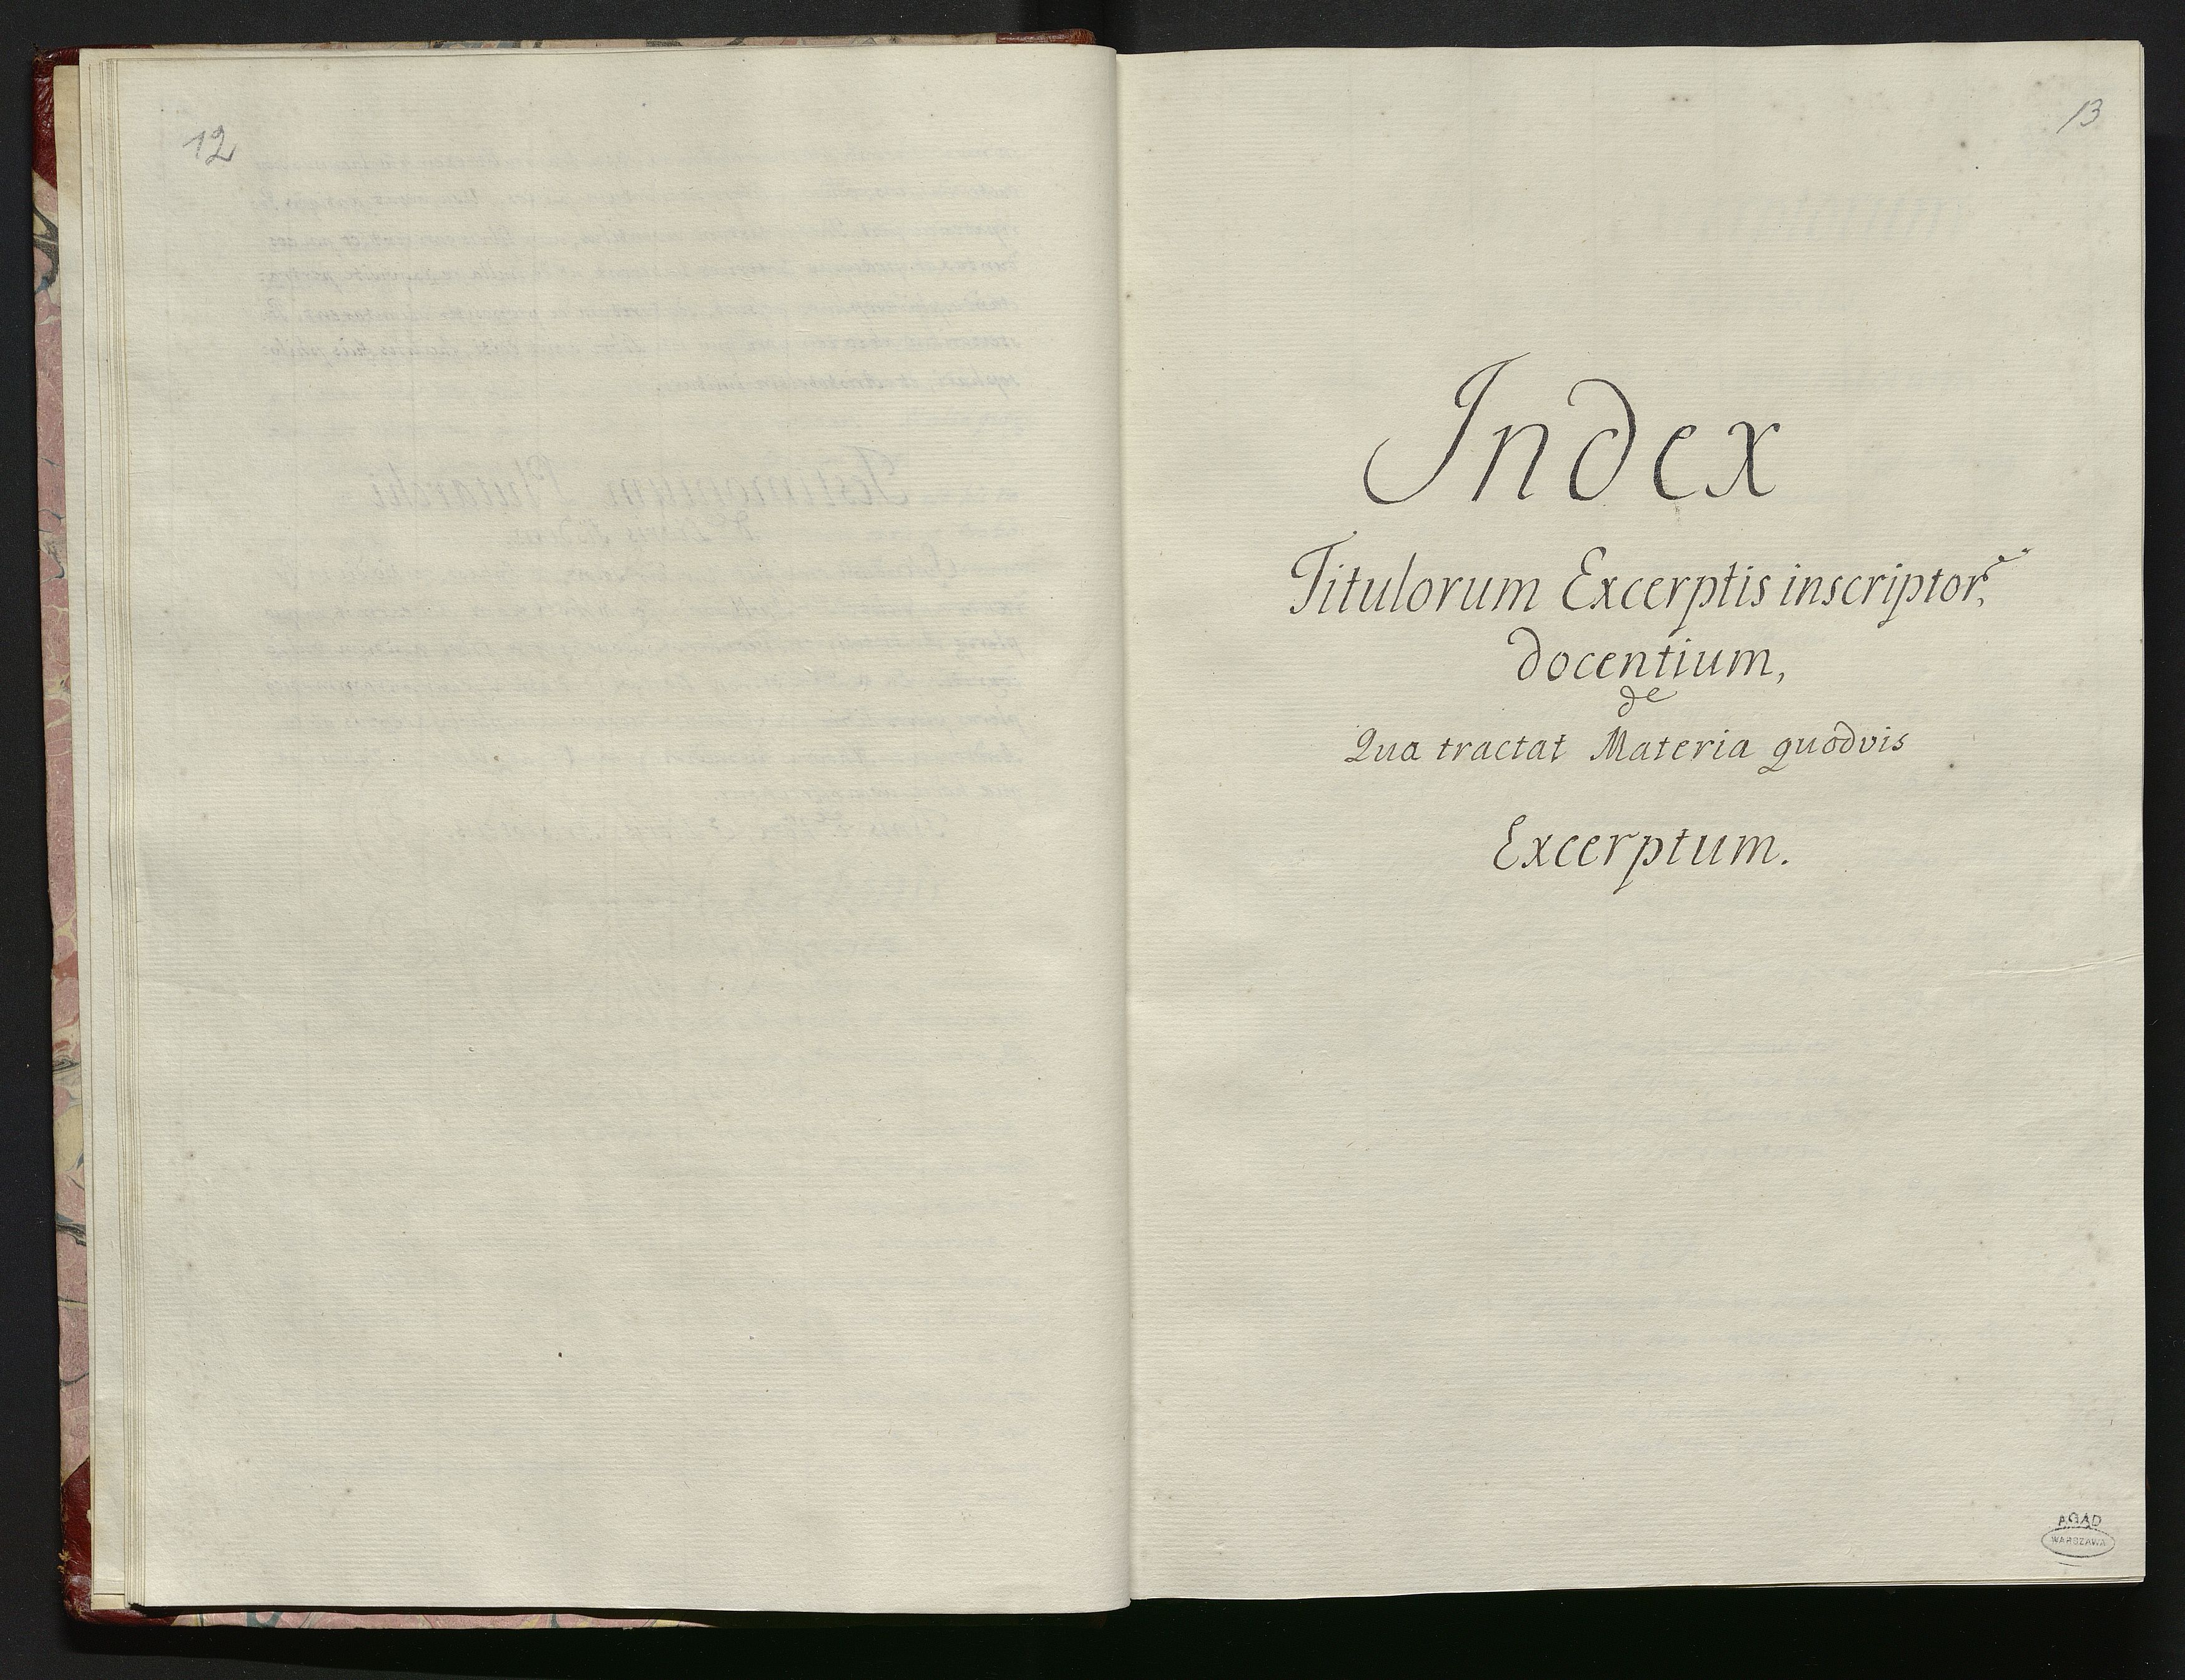 12
13
Index
Titulorum Excerptis inscriptor,
docentium,
de
Qua tractat Materia quodvis
Excerptum.
AGAD
WARSZAWA